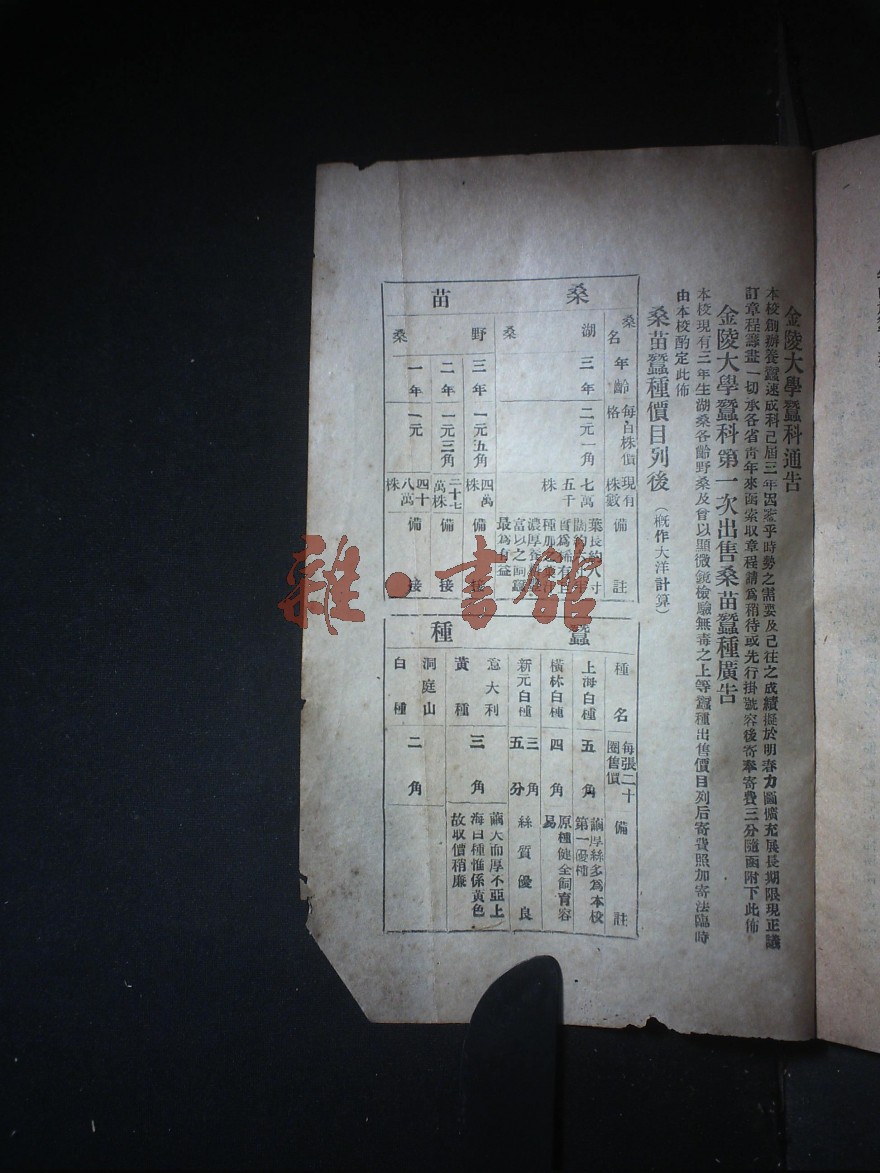 金陵大學蠶科通告
本校創辦養蠶速成科已屆三年因鑒乎時勢之需要及已往之成績擬於明春力圖擴充展長期限現正議
訂章程籌畫一切承各省靑年來函索取章程請爲稍待或先行掛號容後寄奉寄費三分隨函附下此佈
金陵大學蠶科第一次出售桑苗蠶種廣告
本校現有三年生湖桑各齡野桑及曾以顯微鏡檢驗無毒之上等蠶種出售價目列后寄費照加寄法臨時
由本校酌定此佈
桑苗蠶種價目列後（概作大洋計算）
桑苗
桑名 年齡 每百株價格 現有株數 備註
湖桑 三年 二元一角 七萬五千株 葉長約八寸
最爲有益
野桑 三年 一元五角 四萬株 備接
二年 一元三角 二十七萬株 備接
一年 一元 四十八萬株 備接
蠶種
種名 每張二十圈售價 備註
上海白種 五角 繭厚絲多爲本校第一優種
橫林白種 四角 原種健全飼育容易
新元白種 三角五分 絲質優良
意大利黃種 三角 繭大而厚不亞上海白種惟係黃色故取價稍廉
洞庭山白種 二角
雜·書館